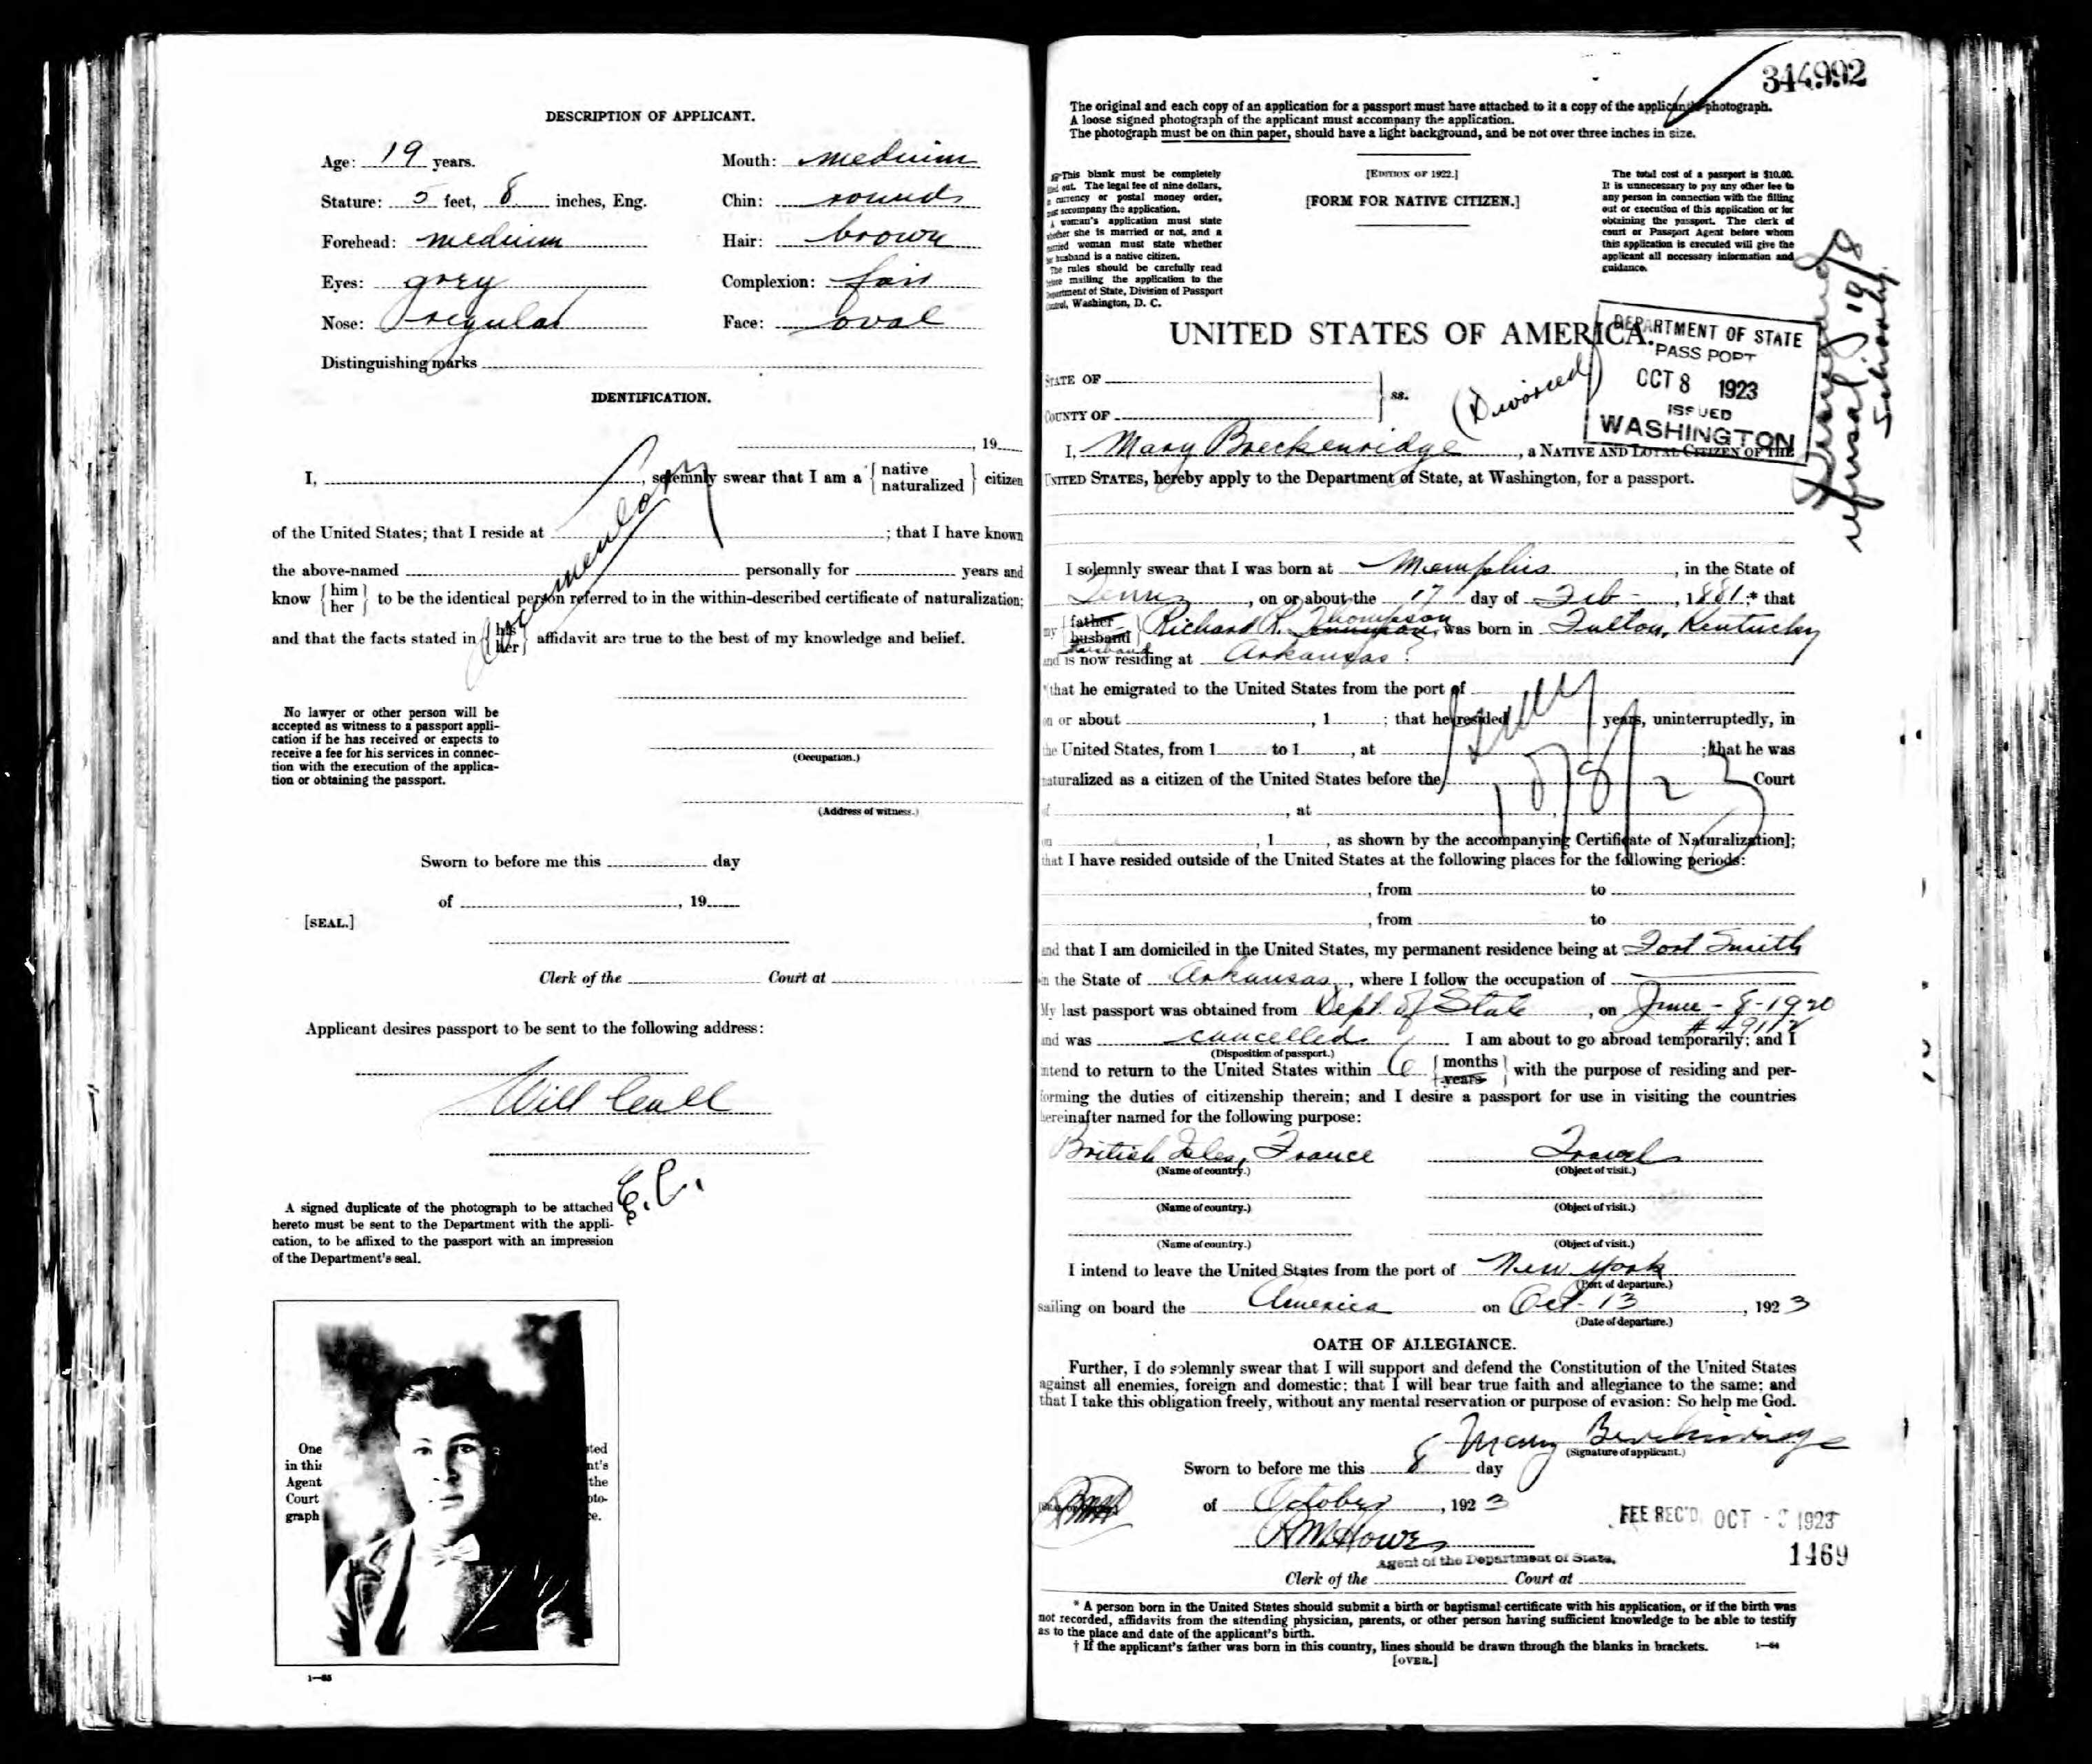 DESCRIPTION OF APPLICANT.
Age: 19 years.
Mouth: medium
Stature: 5 feet, 8 inches, Eng.
Chin: round
Forehead: medium
Hair: brown
Eyes: grey
Complexion: fair
Nose: regular
Face: oval
Distinguishing marks
IDENTIFICATION.
, 19
I, , solemnly swear that I am a { native naturalized } citizen
of the United States; that I reside at ; that I have known
the above-named personally for years and
know { him her } to be the identical person referred to in the within-described certificate of naturalization;
and that the facts stated in { his her } affidavit are true to the best of my knowledge and belief.
No lawyer or other person will be
accepted as witness to a passport appli-
cation if he has received or expects to
receive a fee for his services in connec-
tion with the execution of the applica-
tion or obtaining the passport.
(Occupation.)
(Address of witness.)
Sworn to before me this day
of , 19
[SEAL.]
Clerk of the Court at
Applicant desires passport to be sent to the following address:
Will Call
E.C.
A signed duplicate of the photograph to be attached
hereto must be sent to the Department with the appli-
cation, to be affixed to the passport with an impression
of the Department's seal.
One
in this
Agent
Court
graph
ted
nt's
the
oto-
ce.
1—65
344992
The original and each copy of an application for a passport must have attached to it a copy of the applicant's photograph.
A loose signed photograph of the applicant must accompany the application.
The photograph must be on thin paper, should have a light background, and be not over three inches in size.
This blank must be completely
out. The legal fee of nine dollars,
currency or postal money order,
accompany the application.
A woman's application must state
whether she is married or not, and a
married woman must state whether
her husband is a native citizen.
The rules should be carefully read
before mailing the application to the
Department of State, Division of Passport
Control, Washington, D. C.
[EDITION OF 1922.]
[FORM FOR NATIVE CITIZEN.]
The total cost of a passport is $10.00.
It is unnecessary to pay any other fee to
any person in connection with the filling
out or execution of this application or for
obtaining the passport. The clerk of
court or Passport Agent before whom
this application is executed will give the
applicant all necessary information and
guidance.
UNITED STATES OF AMERICA.
DEPARTMENT OF STATE
PASSPORT
OCT 8 1923
ISSUED
WASHINGTON
STATE OF
COUNTY OF
ss.
(Divorced)
I, Mary Breckenridge, a NATIVE AND LOYAL CITIZEN OF THE
UNITED STATES, hereby apply to the Department of State, at Washington, for a passport.
I solemnly swear that I was born at Memphis, in the State of
Tenn, on or about the 17 day of Feb-, 1881;* that
my { father husband } Richard R. Thompson, was born in Fulton, Kentucky
husband
and is now residing at Arkansas?
that he emigrated to the United States from the port of
on or about , 1 ; that he resided years, uninterruptedly, in
the United States, from 1 to 1 , at ; that he was
naturalized as a citizen of the United States before the Court
of , at
on , 1 , as shown by the accompanying Certificate of Naturalization];
that I have resided outside of the United States at the following places for the following periods:
, from to
, from to
and that I am domiciled in the United States, my permanent residence being at Fort Smith
in the State of Arkansas, where I follow the occupation of
My last passport was obtained from Dept. of State, on June - 8-1920
# 49112
and was cancelled I am about to go abroad temporarily; and I
(Disposition of passport.)
intend to return to the United States within 6 { months years } with the purpose of residing and per-
forming the duties of citizenship therein; and I desire a passport for use in visiting the countries
hereinafter named for the following purpose:
British Isles, France Travel
(Name of country.) (Object of visit.)
(Name of country.) (Object of visit.)
(Name of country.) (Object of visit.)
I intend to leave the United States from the port of New York
(Port of departure.)
sailing on board the America on Oct- 13, 1923
(Date of departure.)
OATH OF ALLEGIANCE.
Further, I do solemnly swear that I will support and defend the Constitution of the United States
against all enemies, foreign and domestic; that I will bear true faith and allegiance to the same; and
that I take this obligation freely, without any mental reservation or purpose of evasion: So help me God.
Mary Breckinridge
(Signature of applicant.)
Sworn to before me this 8 day
of October, 1923
FEE REC'D. OCT - 1923
1469
Agent of the Department of State.
Clerk of the Court at
* A person born in the United States should submit a birth or baptismal certificate with his application, or if the birth was
not recorded, affidavits from the attending physician, parents, or other person having sufficient knowledge to be able to testify
as to the place and date of the applicant's birth.
† If the applicant's father was born in this country, lines should be drawn through the blanks in brackets. 1—64
[OVER.]